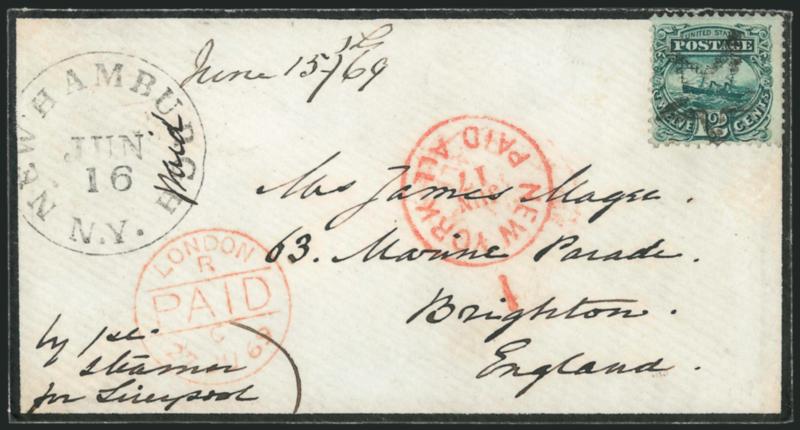 June 15th/69
UNITED STATES
POSTAGE
TWELVE 12 CENTS
NEW HAMBURGH
JUN
16
N.Y.
Paid
NEW YORK
PAID ALL
JUN
17
1
Mrs James Magee.
63. Marine Parade.
Brighton.
England.
LONDON
R
PAID
C
27 JU 69
by 1st
steamer
for Liverpool